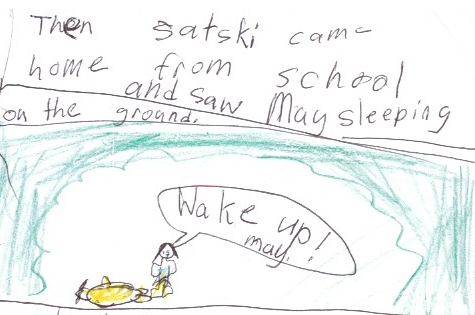 Then satski came
home from school
and saw May sleeping
on the ground.
Wake up!
may.